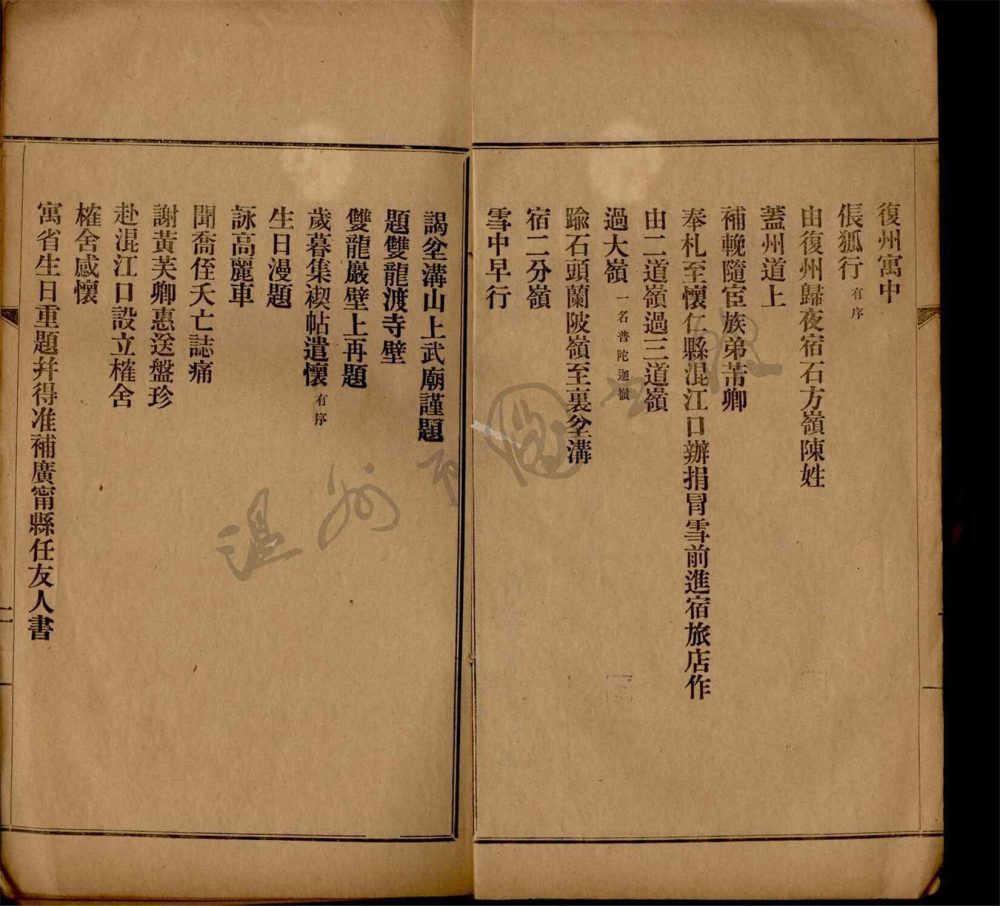 復州寓中
倀狐行 有序
由復州歸夜宿石方嶺陳姓
蓋州道上
補輓隨宦族弟芾卿
奉札至懷仁縣混江口辦捐冒雪前進宿旅店作
由二道嶺過三道嶺
過大嶺 一名普陀迦嶺
踰石頭蘭陂嶺至裏坌溝
宿二分嶺
雪中早行
謁坌溝山上武廟謹題
題雙龍渡寺壁
雙龍巖壁上再題
歲暮集禊帖遣懷 有序
生日漫題
詠高麗車
聞喬侄夭亡誌痛
謝黃芙卿惠送盤珍
赴混江口設立榷舍
榷舍感懷
寓省生日重題并得准補廣甯縣任友人書
二
溫州市圖書館